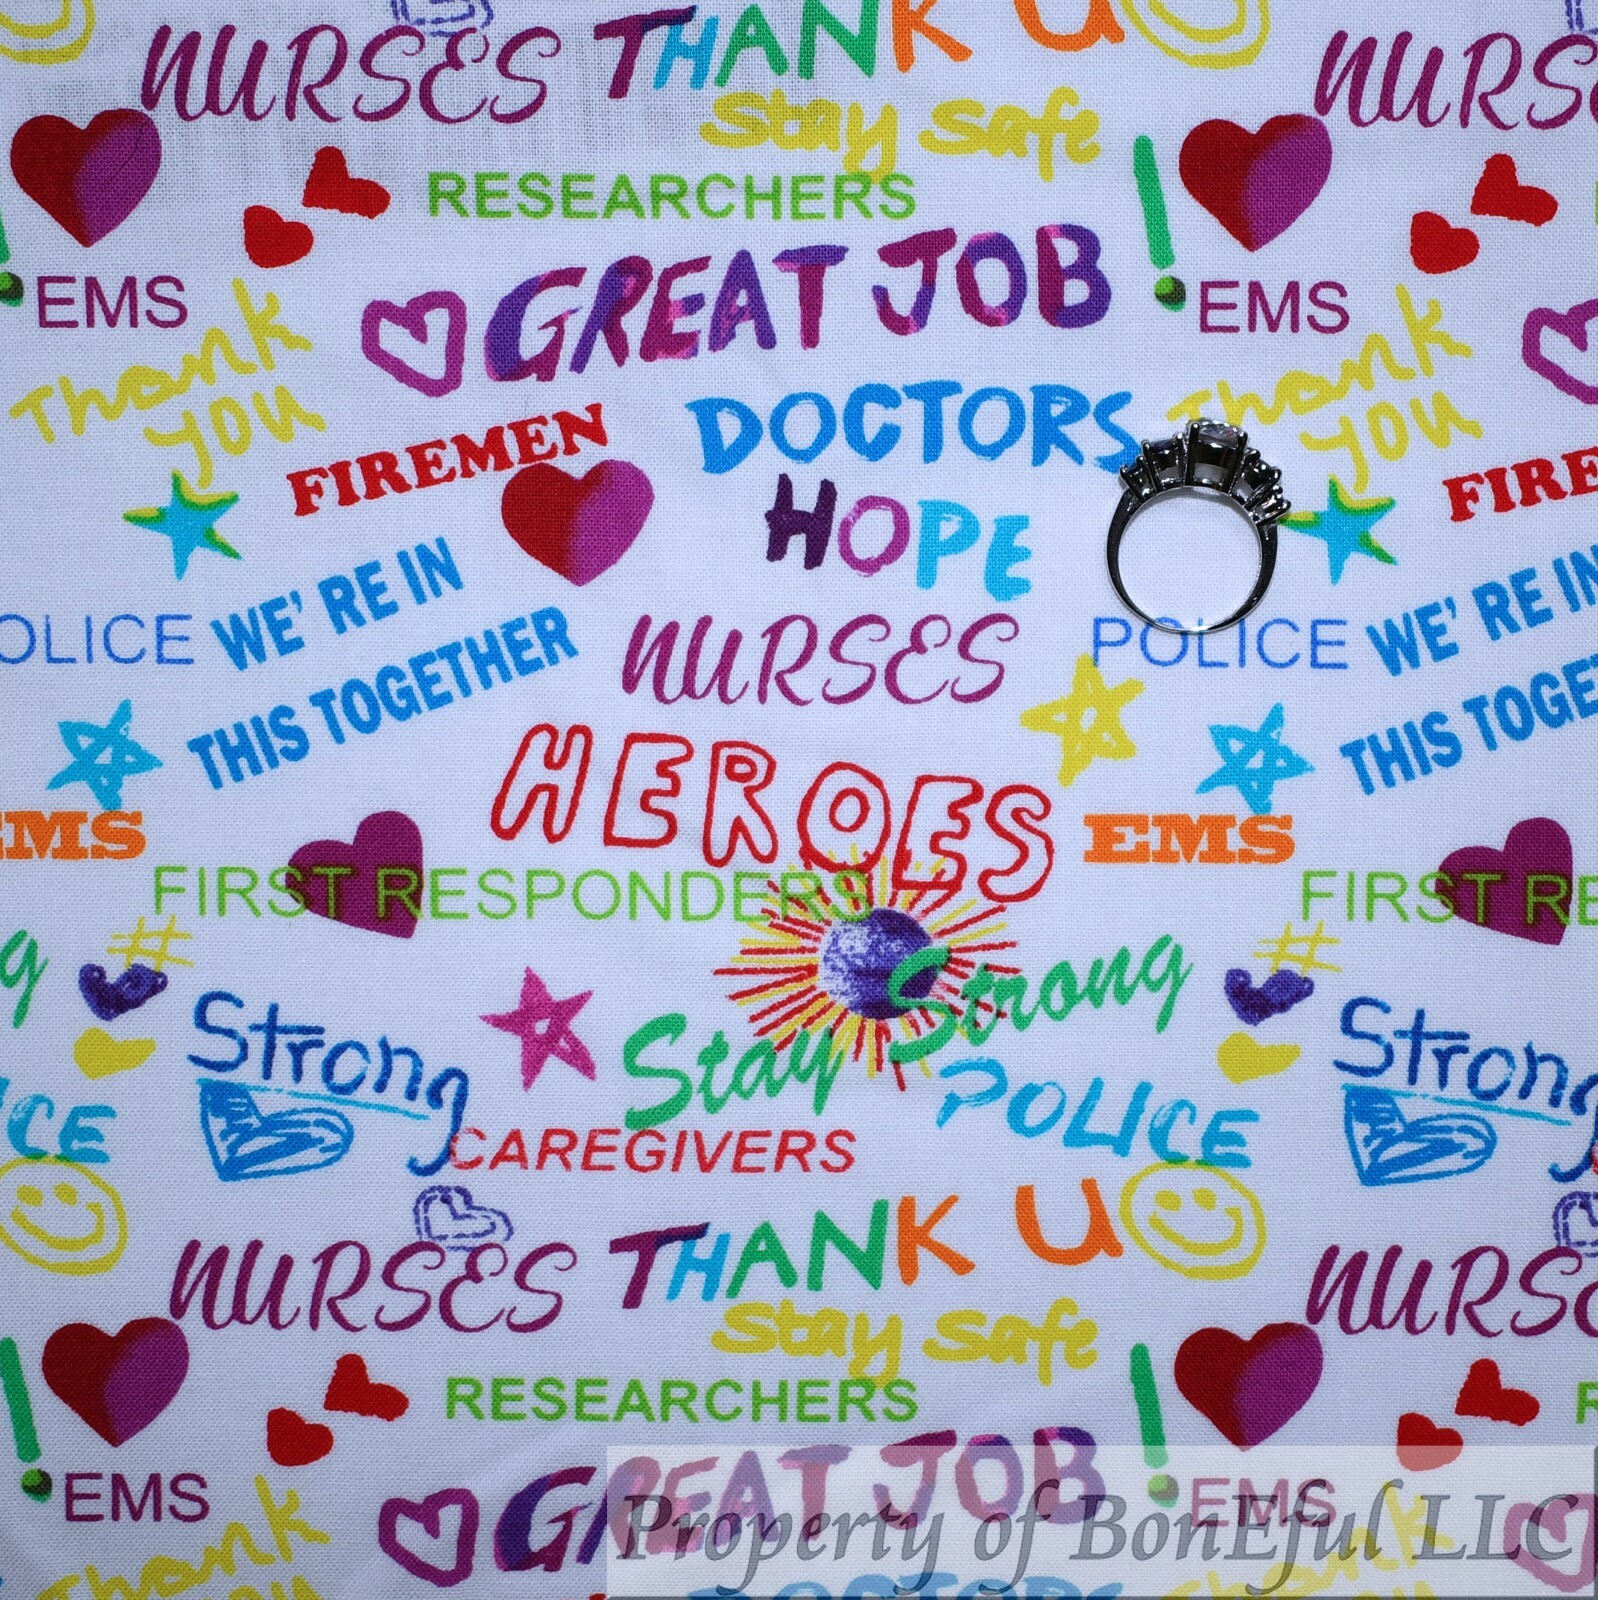 NURSES THANK U NURSE
stay safe
RESEARCHERS
! EMS GREAT JOB ! EMS
Thank you Thank you
FIREMEN DOCTORS FIRE
HOPE
OLICE WE' RE IN POLICE WE' RE IN
THIS TOGETHER NURSES THIS TOGE
HEROES
EMS EMS
FIRST RESPONDERS FIRST RE
# #
g Strong Stay Strong Strong
ICE POLICE
CAREGIVERS
NURSES THANK U NURSE
stay safe
RESEARCHERS R
! EMS GREAT JOB ! EMS
Thank you DOCTORS Thank
Property of BonEful LLC